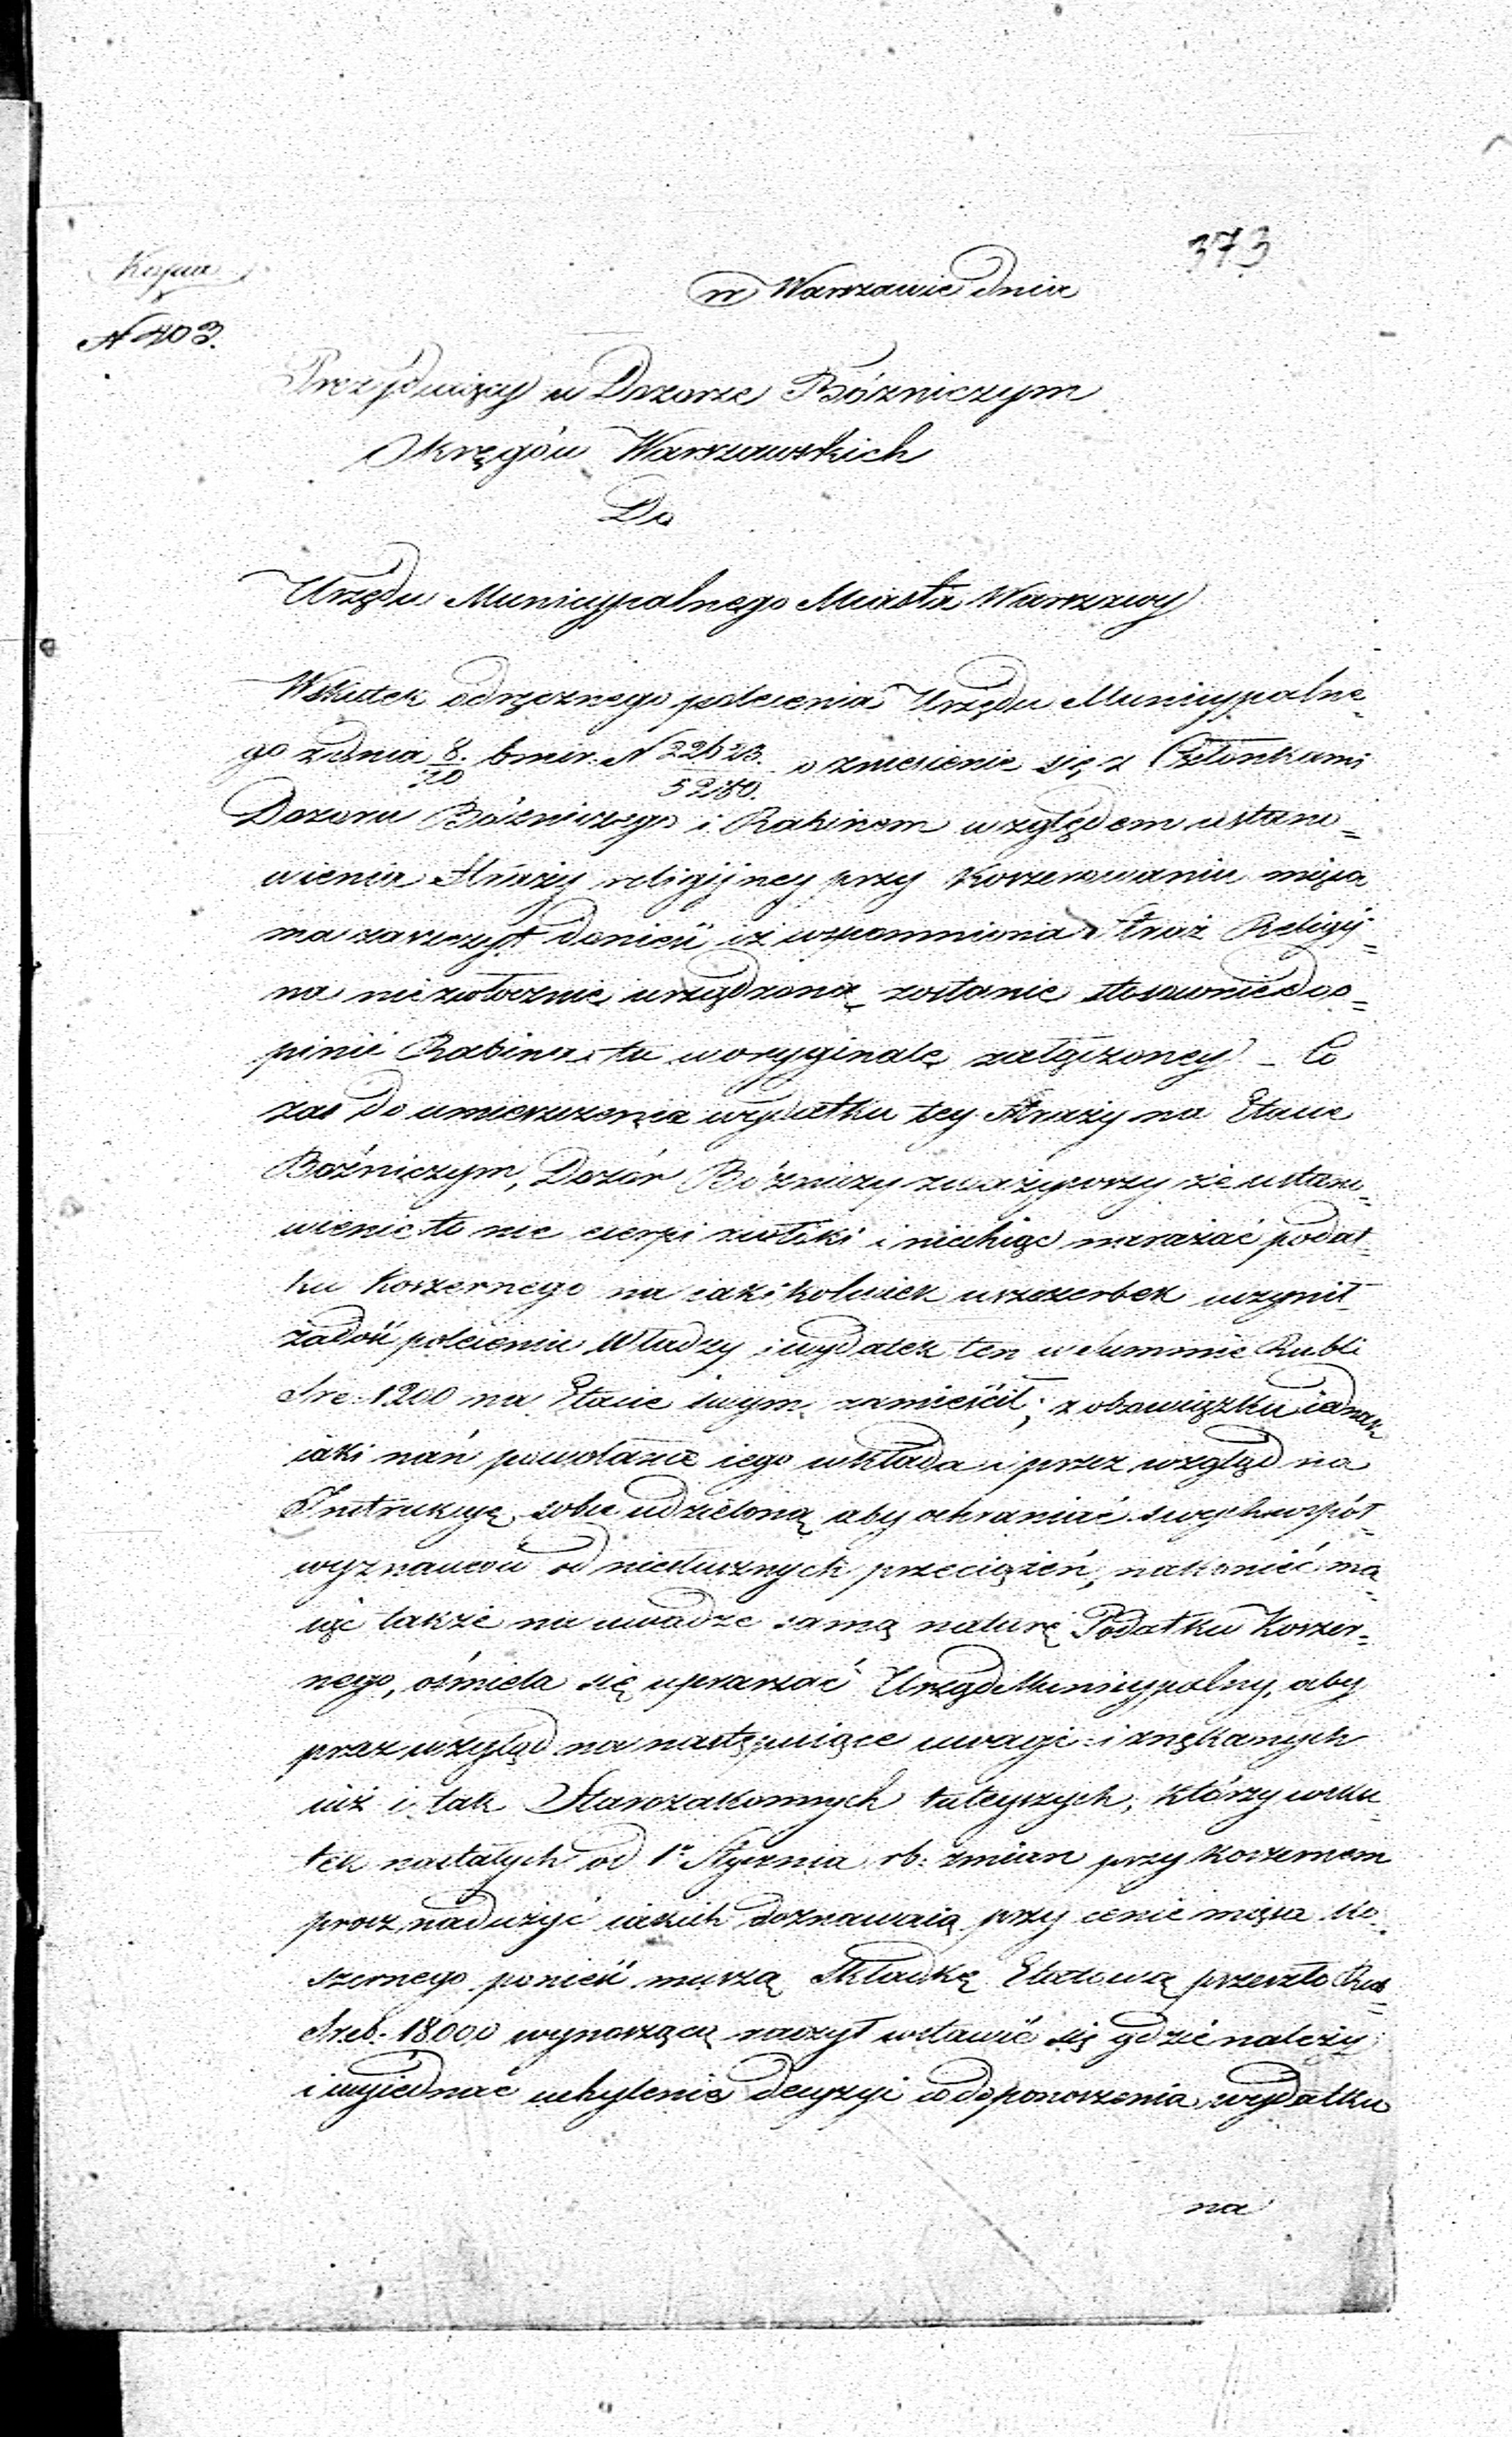 373
Kopia
N 403.
w Warszawie dnia
Prezydujący w Dozorze Bóżniczym
Okręgów Warszawskich
Do
Urzędu Municypalnego Miasta Warszawy
Wskutek odręcznego polecenia Urzędu Municypalne
go z dnia 8/20 b. mir. N
o zniesienie się z Członkami
Dozoru Bóżniczego i Rabinem względem ustano=
wienia Straży religijney przy Koszerowaniu mięsa
ma zaszczyt donieść iż wspomniona Straż Religij=
na niezwłocznie urządzona zostanie stosownie do o=
pinii Rabina tu w oryginale załączoney – Co
zaś do umieszczenia wydatku tey Straży na Etacie
Bóżniczym, Dozór Bóżniczy zważywszy że ustano=
wienie to nie cierpi zwłoki i niechcąc narażać podat=
ku Koszernego na iakikolwiek uszczerbek uczynił
zadość poleceniu Władzy i wydatek ten w Summie Rubli
Sre: 1200 na Etacie swym zamieścił; z obowiązku iednak
iaki nań powołanie iego wkłada i przez wzgląd na
Instrukcyę sobie udzieloną aby ochraniać swych współ=
wyznawców od niesłusznych przeciążeń, nakoniec ma=
iąc także na uwadze samą naturę Podatku Koszer=
nego, ośmiela się upraszać Urząd Municypalny, aby
przez wzgląd na następuiące uwagi i znękanych
iuż i tak Starozakonnych tuteyszych, którzy wsku=
tek nastałych od 1o Stycznia rb: zmian przy koszernem
prócz nadużyć iakich doznawaią przy cenie mięsa Ko=
szernego ponieść muszą Składkę Etatową przeszło Rub=
Sreb: 18000 wynoszącą raczył wstawić się gdzie należy
i wyiednać uchylenie decyzyi co do ponoszenia wydatku
na